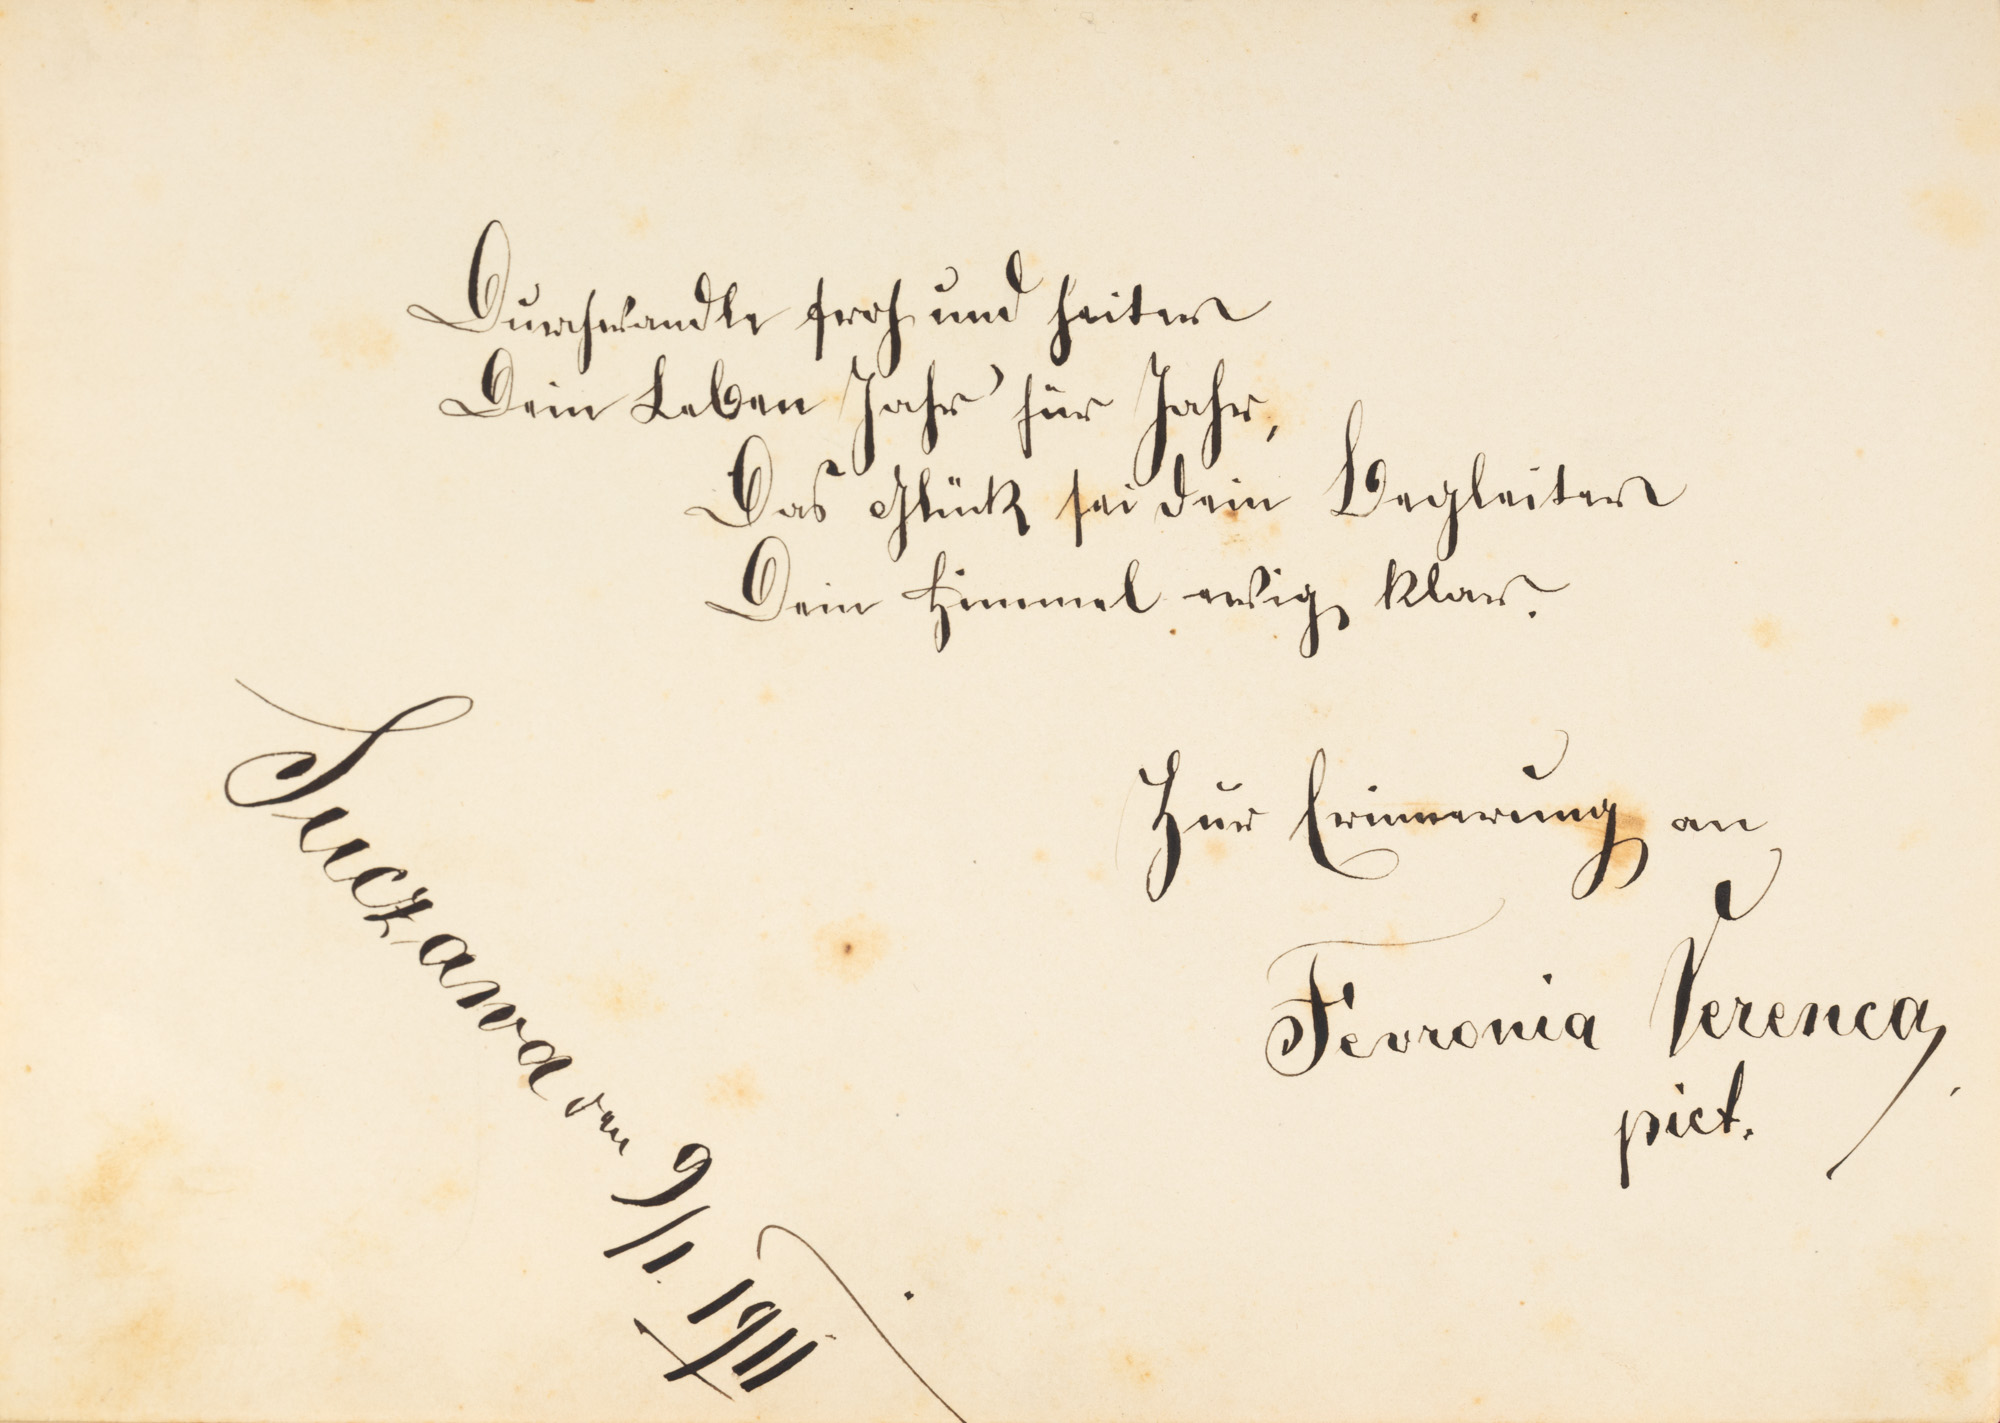 Durchwandle froh und heiter
Dein Leben Jahr für Jahr,
Das Glück sei dein Begleiter
Dein Himmel ewig klar.
Zur Erinnerung an
Fevronia Verenca
pict.
Suczawa den 9/1. 1911